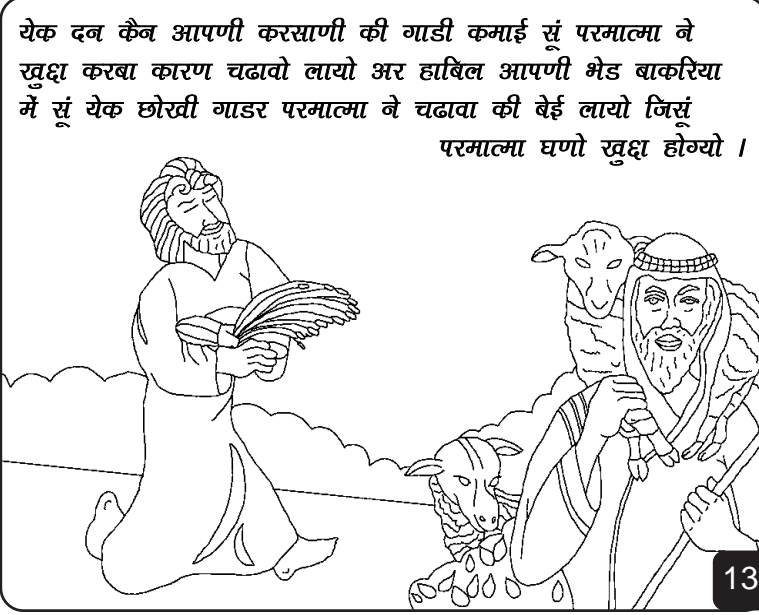 येक दन कैन आपणी करसाणी की गाडी कमाई सूं परमात्मा ने
खुश करबा कारण चढावो लायो अर हाबिल आपणी भेड बाकरिया
में सूं येक छोखी गाडर परमात्मा ने चढावा की बेई लायो जिसूं
परमात्मा घणो खुश होग्यो ।
13